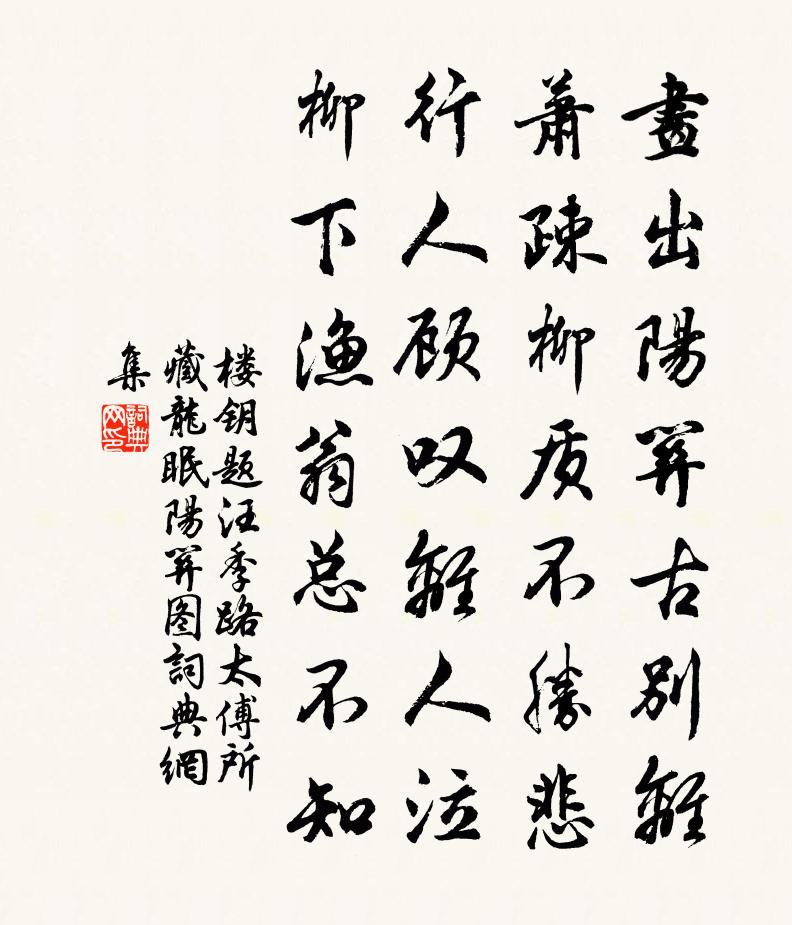 畫出陽關古別離
蕭疎柳质不勝悲
行人顾叹離人泣
柳下漁翁总不知
楼钥题汪季路太傅所
藏龍眠陽關图詞典網
集
詞典网印